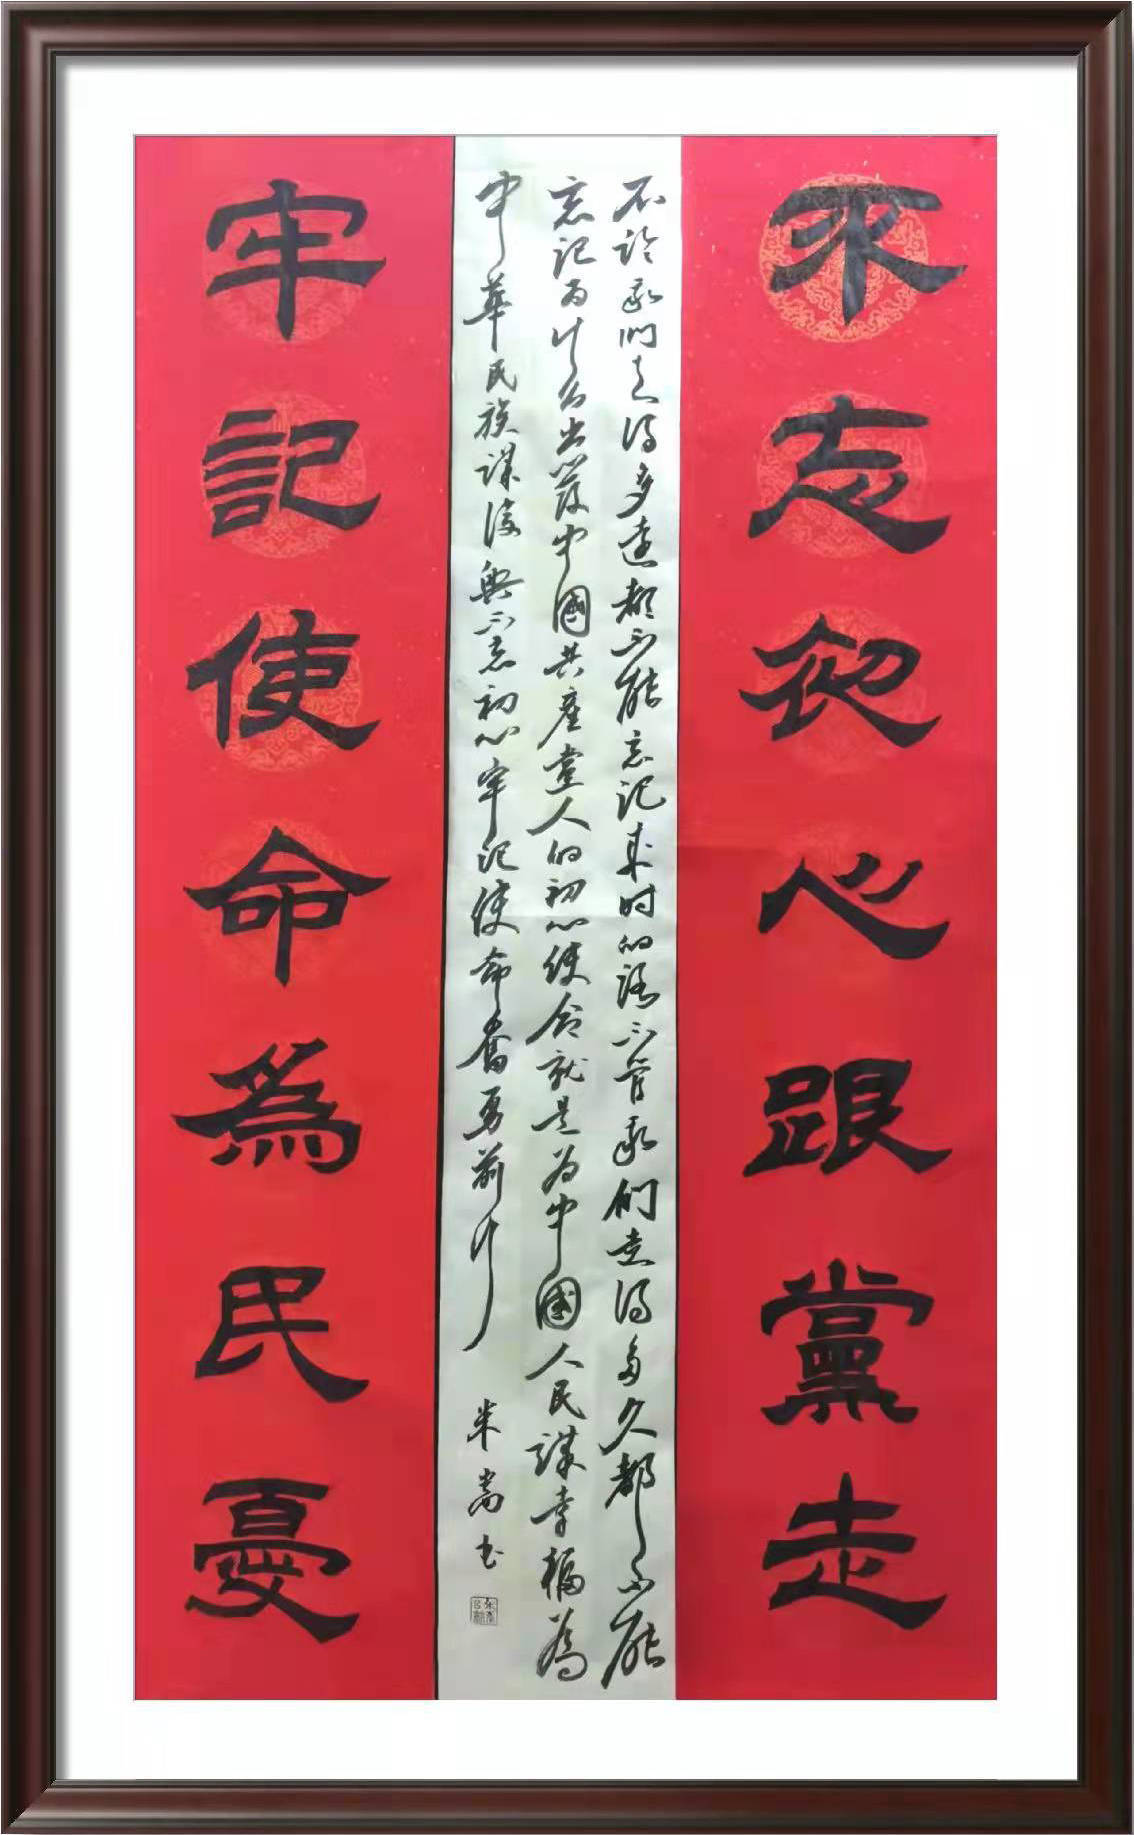 不忘初心跟黨走
不论我们走得多遠都不能忘记来时的路不管我们走得多久都不能
忘记为什么出發中國共産党人的初心使命就是为中國人民谋幸福為
中華民族谋復興不忘初心牢记使命奮勇前行
朱嵩书
牢記使命為民憂